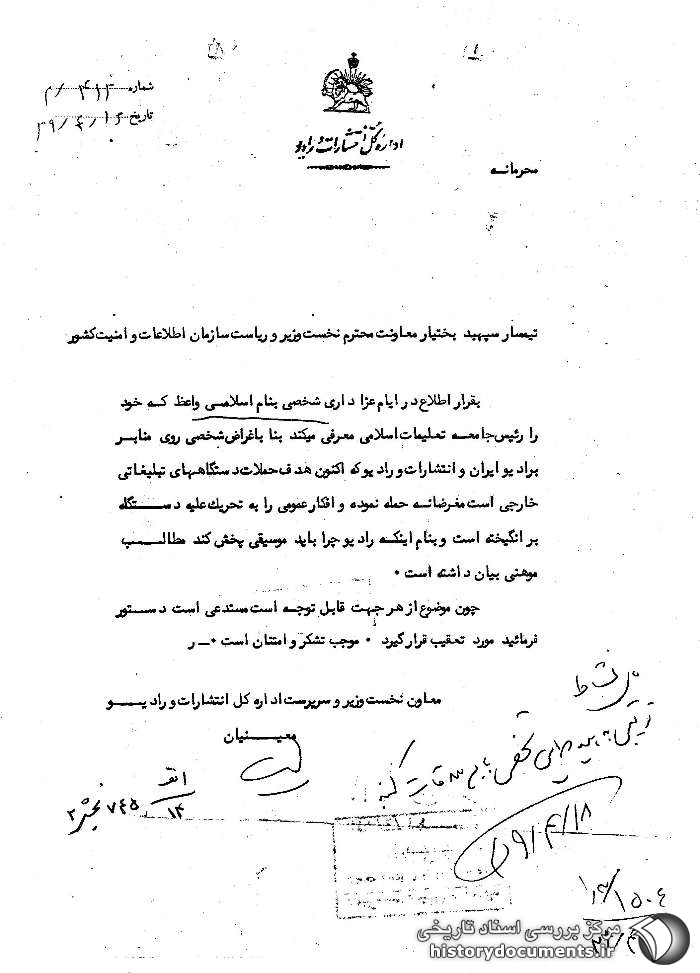 شماره ۴۱۳/م
تاریخ ۳۹/۴/۱۶
اداره کل انتشارات و رادیو
محرمانه
تیمسار سپهبد بختیار معاونت محترم نخست وزیر و ریاست سازمان اطلاعات و امنیت کشور
بقرار اطلاع در ایام عزاداری شخصی بنام اسلامی واعظ که خود
را رئیس جامعه تعلیمات اسلامی معرفی میکند بنا باغراض شخصی روی منابر
برادیو ایران و انتشارات و رادیو که اکنون هدف حملات دستگاههای تبلیغاتی
خارجی است مغرضانه حمله نموده و افکار عمومی را به تحریک علیه دستگاه
برانگیخته است و بنام اینکه رادیو چرا باید موسیقی پخش کند مطالب
موهنی بیان داشته است ۰
چون موضوع از هر جهت قابل توجه است مستدعی است دستور
فرمائید مورد تعقیب قرار گیرد ۰ موجب تشکر و امتنان است ۰ـ ر
معاون نخست وزیر و سرپرست اداره کل انتشارات و رادیو
معینیان
۷۴۵
۱۴
۳۹/۴/۱۸
۱۵۰۴
مرکز بررسی اسناد تاریخی
historydocuments.ir